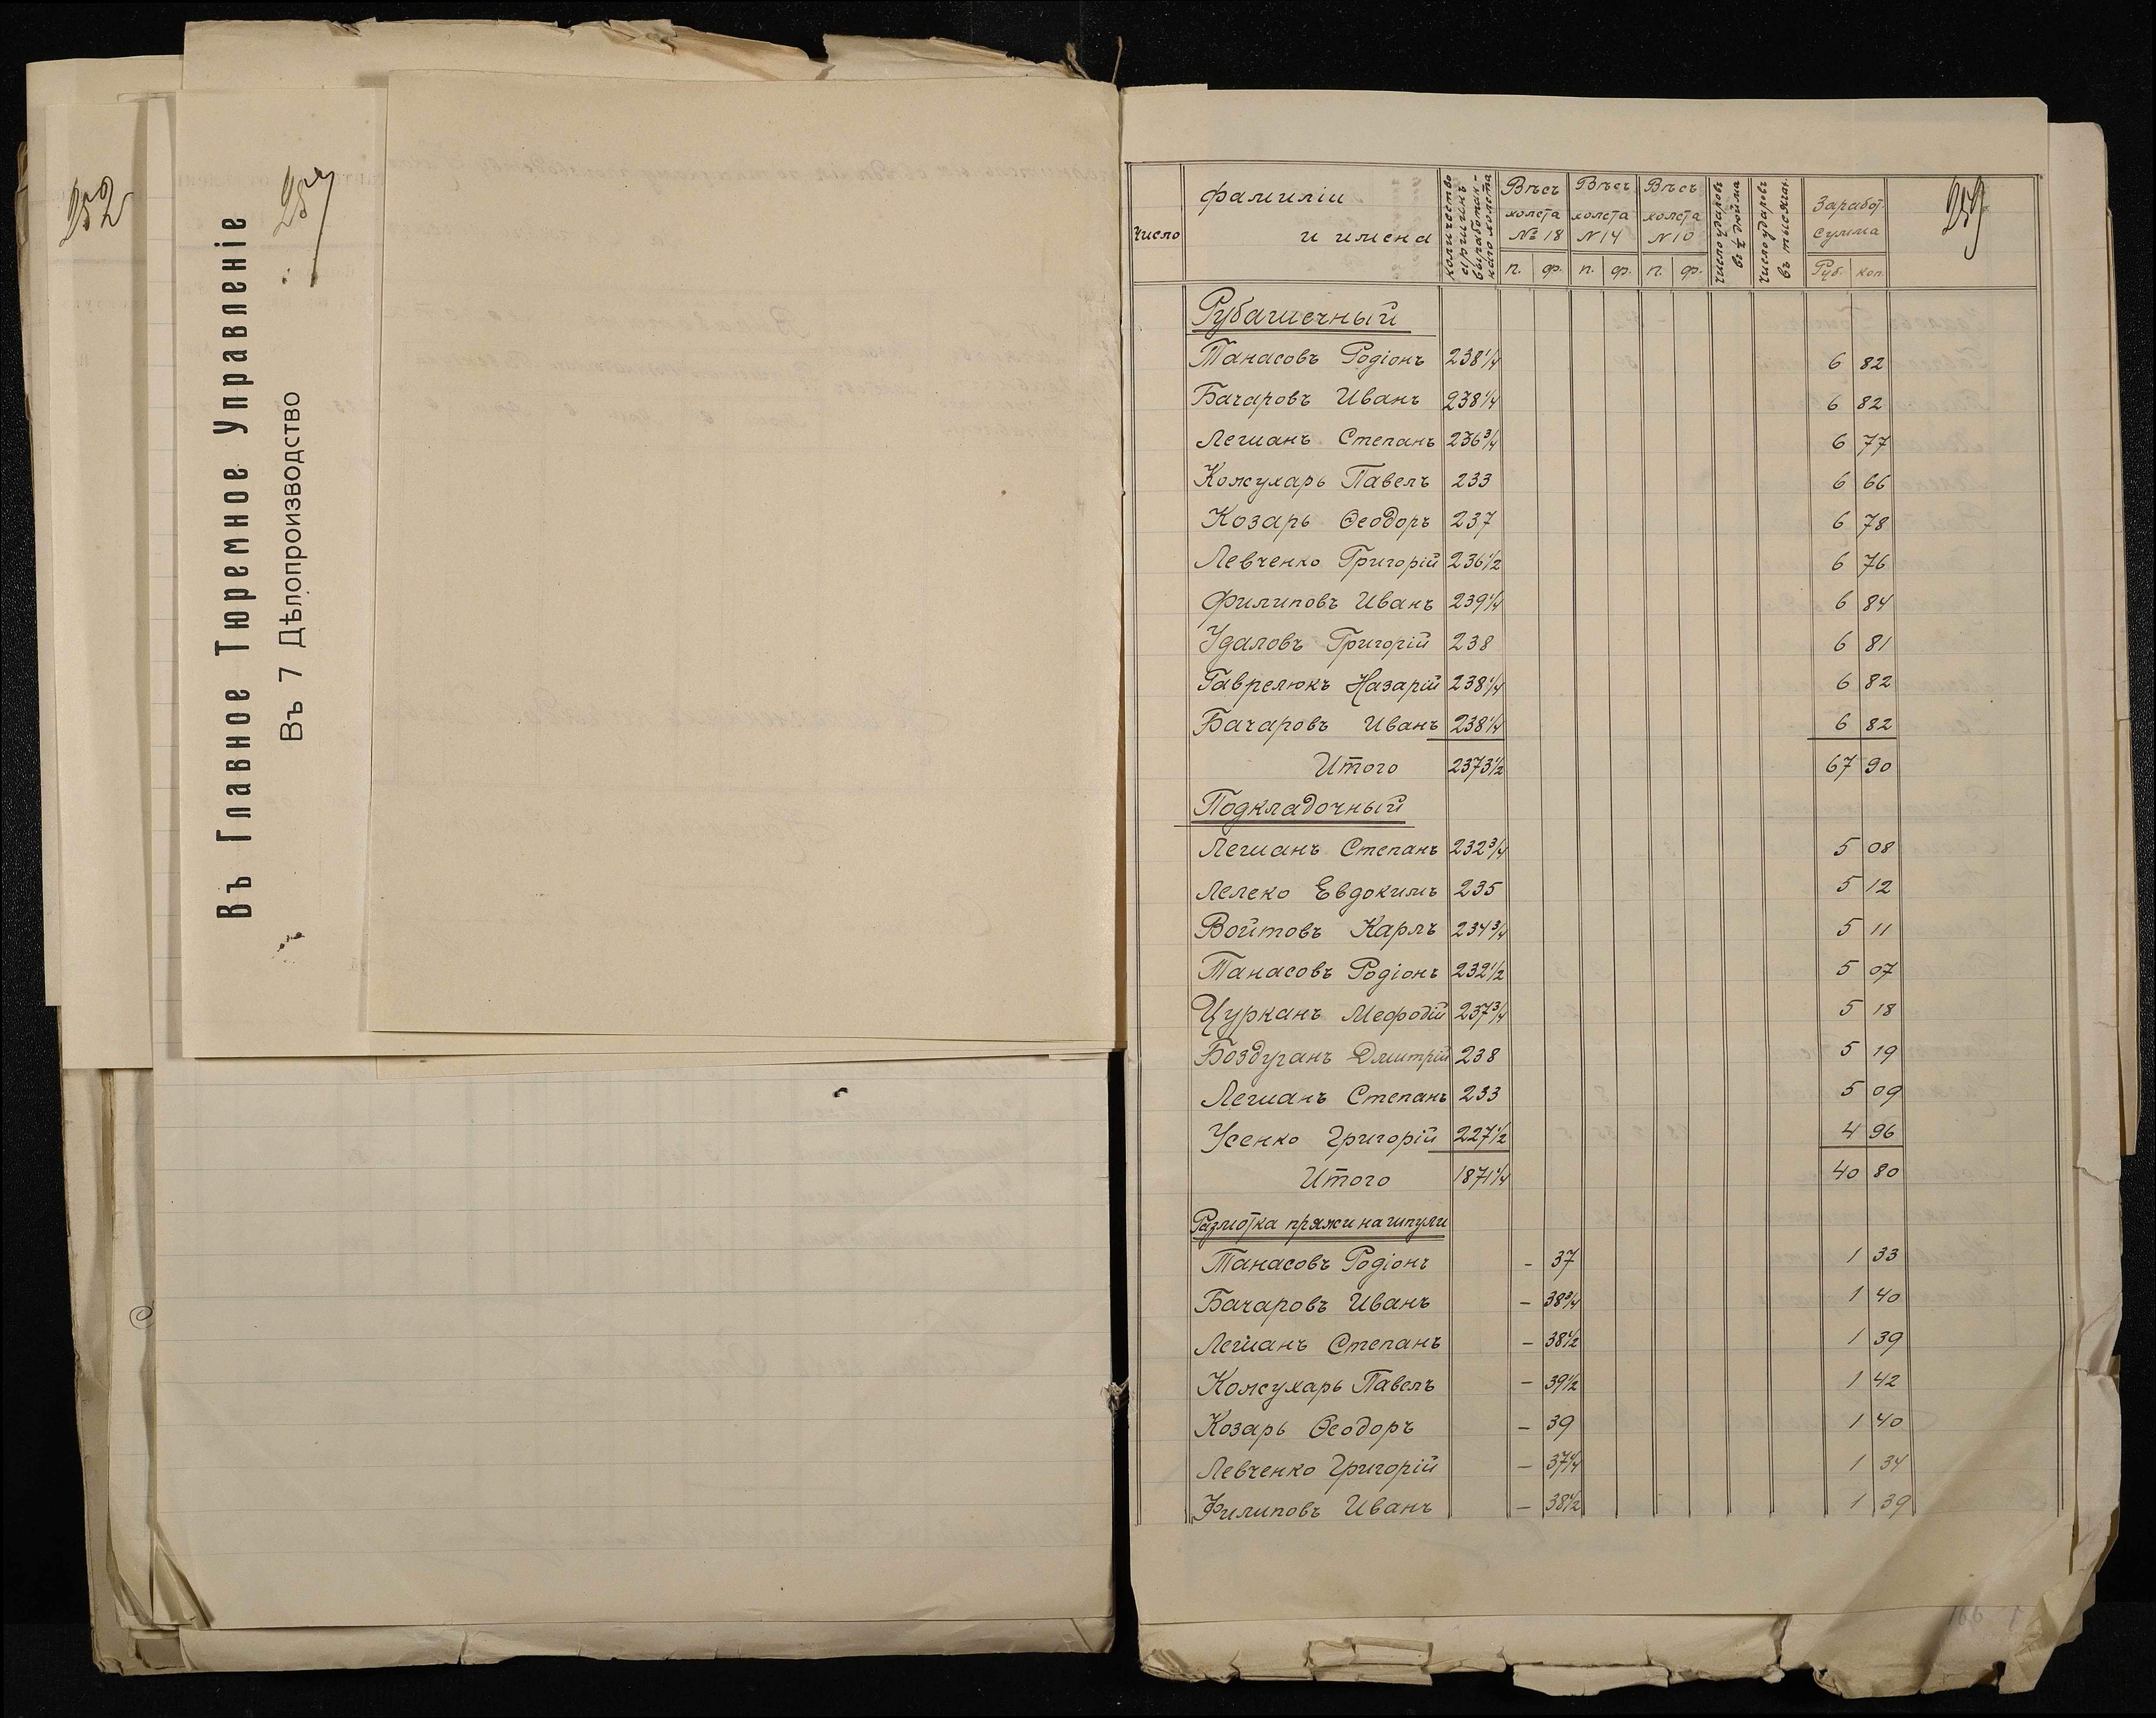 252
257
Въ Главное Тюремное Управленіе
Въ 7 Дѣлопроизводство
259
Число | Фамиліи и имена | Количество аршинъ выработан-наго холста | Вѣсъ холста № 18 п. ф. | Вѣсъ холста N 14 п. ф. | Вѣсъ холста N 10 п. ф. | Число ударовъ въ ½ дюйма | Число ударовъ въ тысячах. | Заработ. сумма Руб. коп.
Рубашечный
Танасовъ Родіонъ 238¼ 6 82
Бачаровъ Иванъ 238¼ 6 82
Легианъ Степанъ 236¾ 6 77
Кожухарь Павелъ 233 6 66
Козарь Ѳеодоръ 237 6 78
Левченко Григорій 236½ 6 76
Филиповъ Иванъ 239¼ 6 84
Удаловъ Григорій 238 6 81
Гаврелюкъ Назарій 238¼ 6 82
Бачаровъ Иванъ 238¼ 6 82
Итого 2373½ 67 90
Подкладочный
Легианъ Степанъ 232¾ 5 08
Лелеко Евдокимъ 235 5 12
Войтовъ Карлъ 234¾ 5 11
Танасовъ Родіонъ 232½ 5 07
Цурканъ Мефодій 237¾ 5 18
Боздуганъ Дмитрій 238 5 19
Легианъ Степанъ 233 5 09
Усенко Григорій 227½ 4 96
Итого 1871¼ 40 80
Размотка пряжи на шпули
Танасовъ Родіонъ - 37 1 33
Бачаровъ Иванъ - 38¾ 1 40
Легианъ Степанъ - 38½ 1 39
Кожухарь Павелъ - 39½ 1 42
Козарь Ѳеодоръ - 39 1 40
Левченко Григорій - 37¼ 1 34
Филиповъ Иванъ - 38½ 1 39